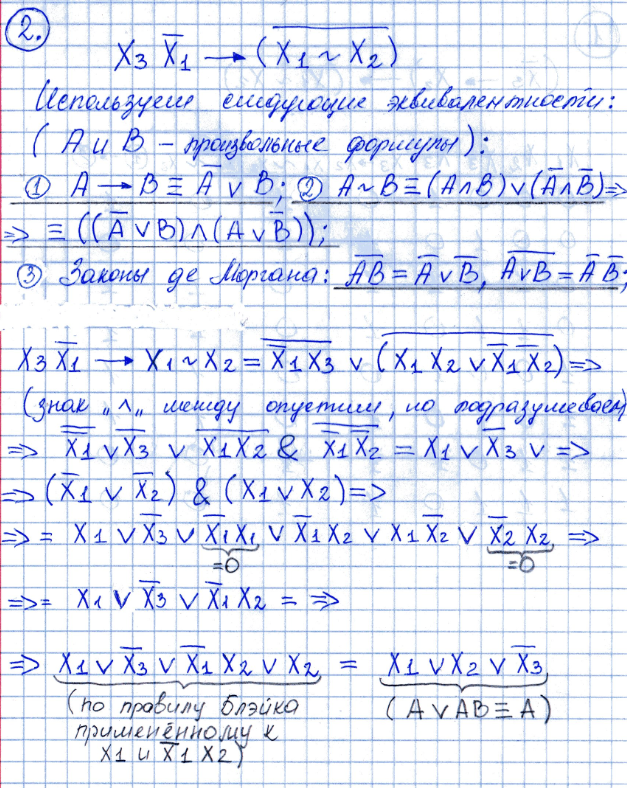 2.
X₃ X̅₁ → (\overline{X₁ ~ X₂})
Используем следующие эквивалентности:
( А и В – произвольные формулы):
① A → B ≡ A̅ ∨ B; ② A ~ B ≡ (A∧B) ∨ (A̅∧B̅) ⇒
⇒ ≡ ((A̅ ∨ B) ∧ (A ∨ B̅));
③ Законы де Моргана: \overline{AB} = A̅ ∨ B̅, \overline{A∨B} = A̅ B̅;
X₃ X̅₁ → \overline{X₁ ~ X₂} = \overline{X̅₁ X₃} ∨ \overline{(X₁ X₂ ∨ X̅₁ X̅₂)} ⇒
(знак „∧„ между опустим, но подразумеваем)
⇒ \overline{X̅₁} ∨ X̅₃ ∨ \overline{X₁X₂} & \overline{X̅₁ X̅₂} = X₁ ∨ X̅₃ ∨ ⇒
⇒ (X̅₁ ∨ X̅₂) & (X₁ ∨ X₂) ⇒
⇒ = X₁ ∨ X̅₃ ∨ X̅₁ X₁ ∨ X̅₁ X₂ ∨ X₁ X̅₂ ∨ X̅₂ X₂ ⇒
=0 =0
⇒ = X₁ ∨ X̅₃ ∨ X̅₁ X₂ = ⇒
⇒ X₁ ∨ X̅₃ ∨ X̅₁ X₂ ∨ X₂ = X₁ ∨ X₂ ∨ X̅₃
(по правилу Блэйка (A ∨ AB ≡ A)
применённому к
X1 и X̅1 X2)